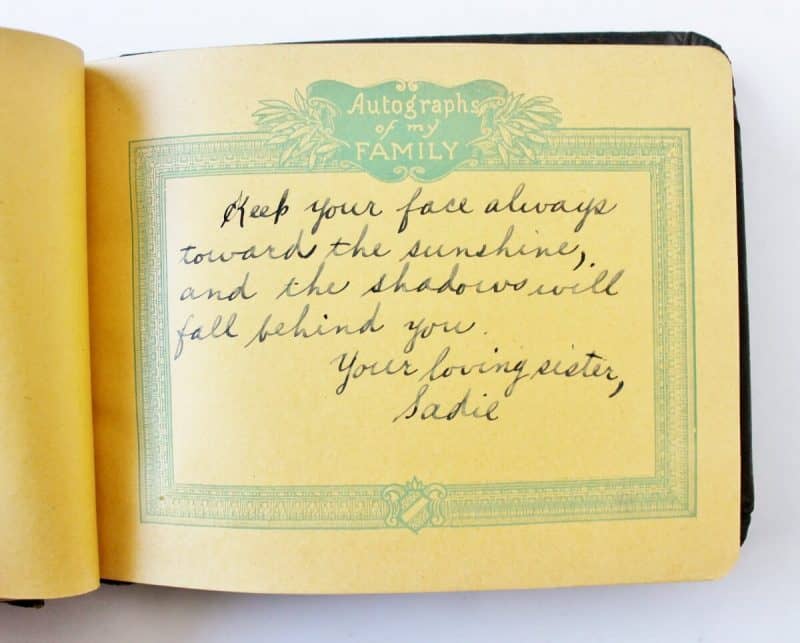 Autographs
of my
FAMILY
Keep your face always
toward the sunshine,
and the shadows will
fall behind you.
Your loving sister,
Sadie